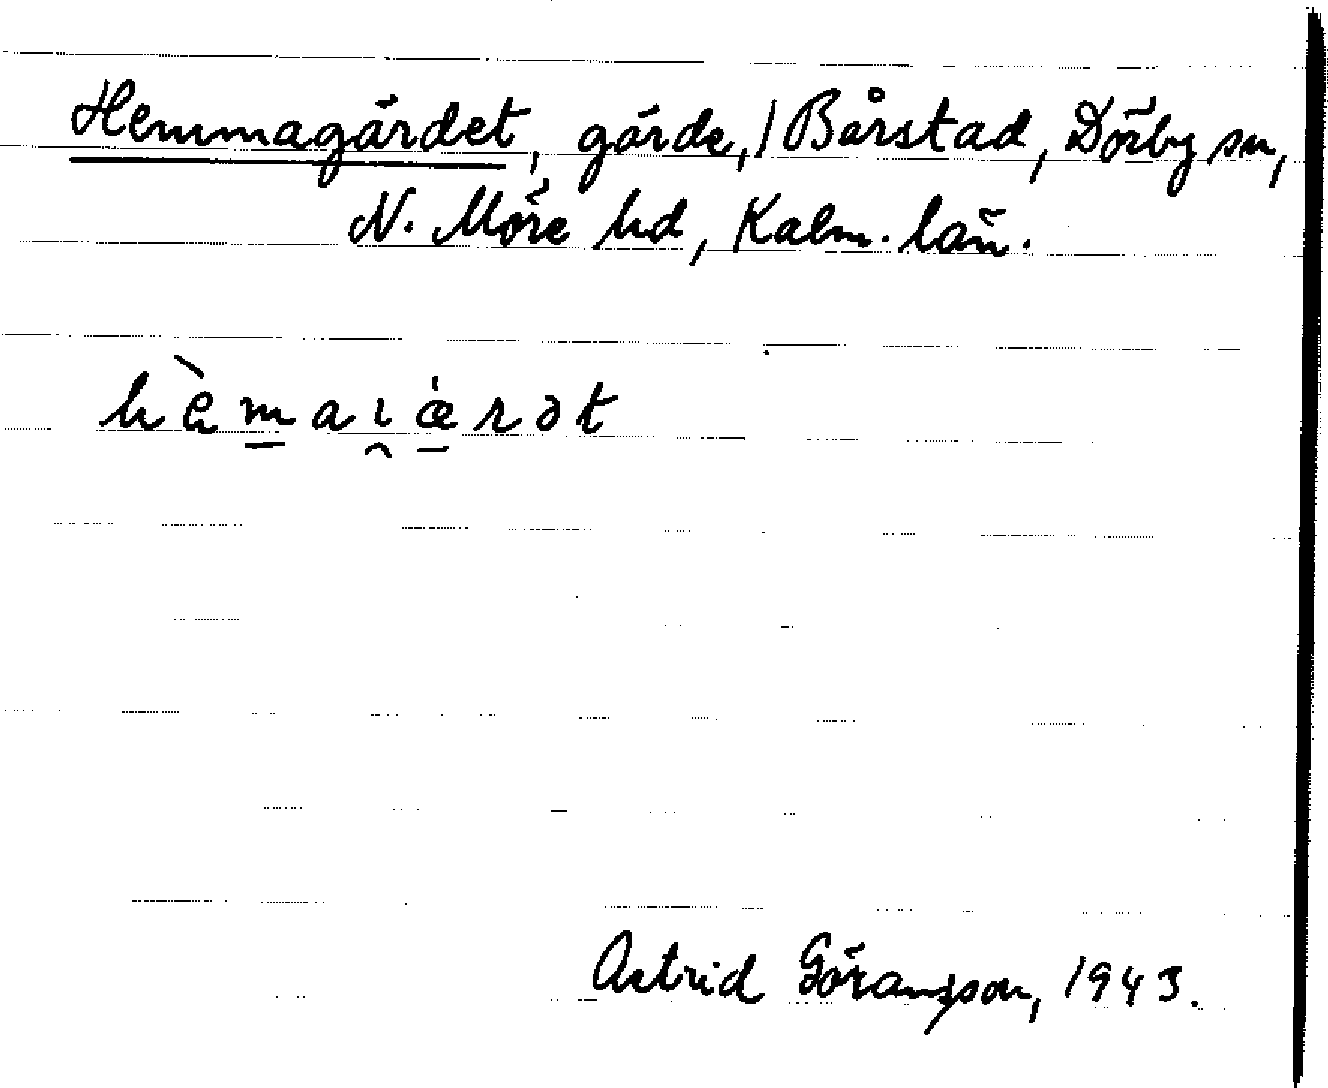 Hemmagärdet, gärde, / Bårstad, Dörby sn,
N. Möre hd, Kalm. län.
hèmaɩærət
Astrid Göransson, 1943.